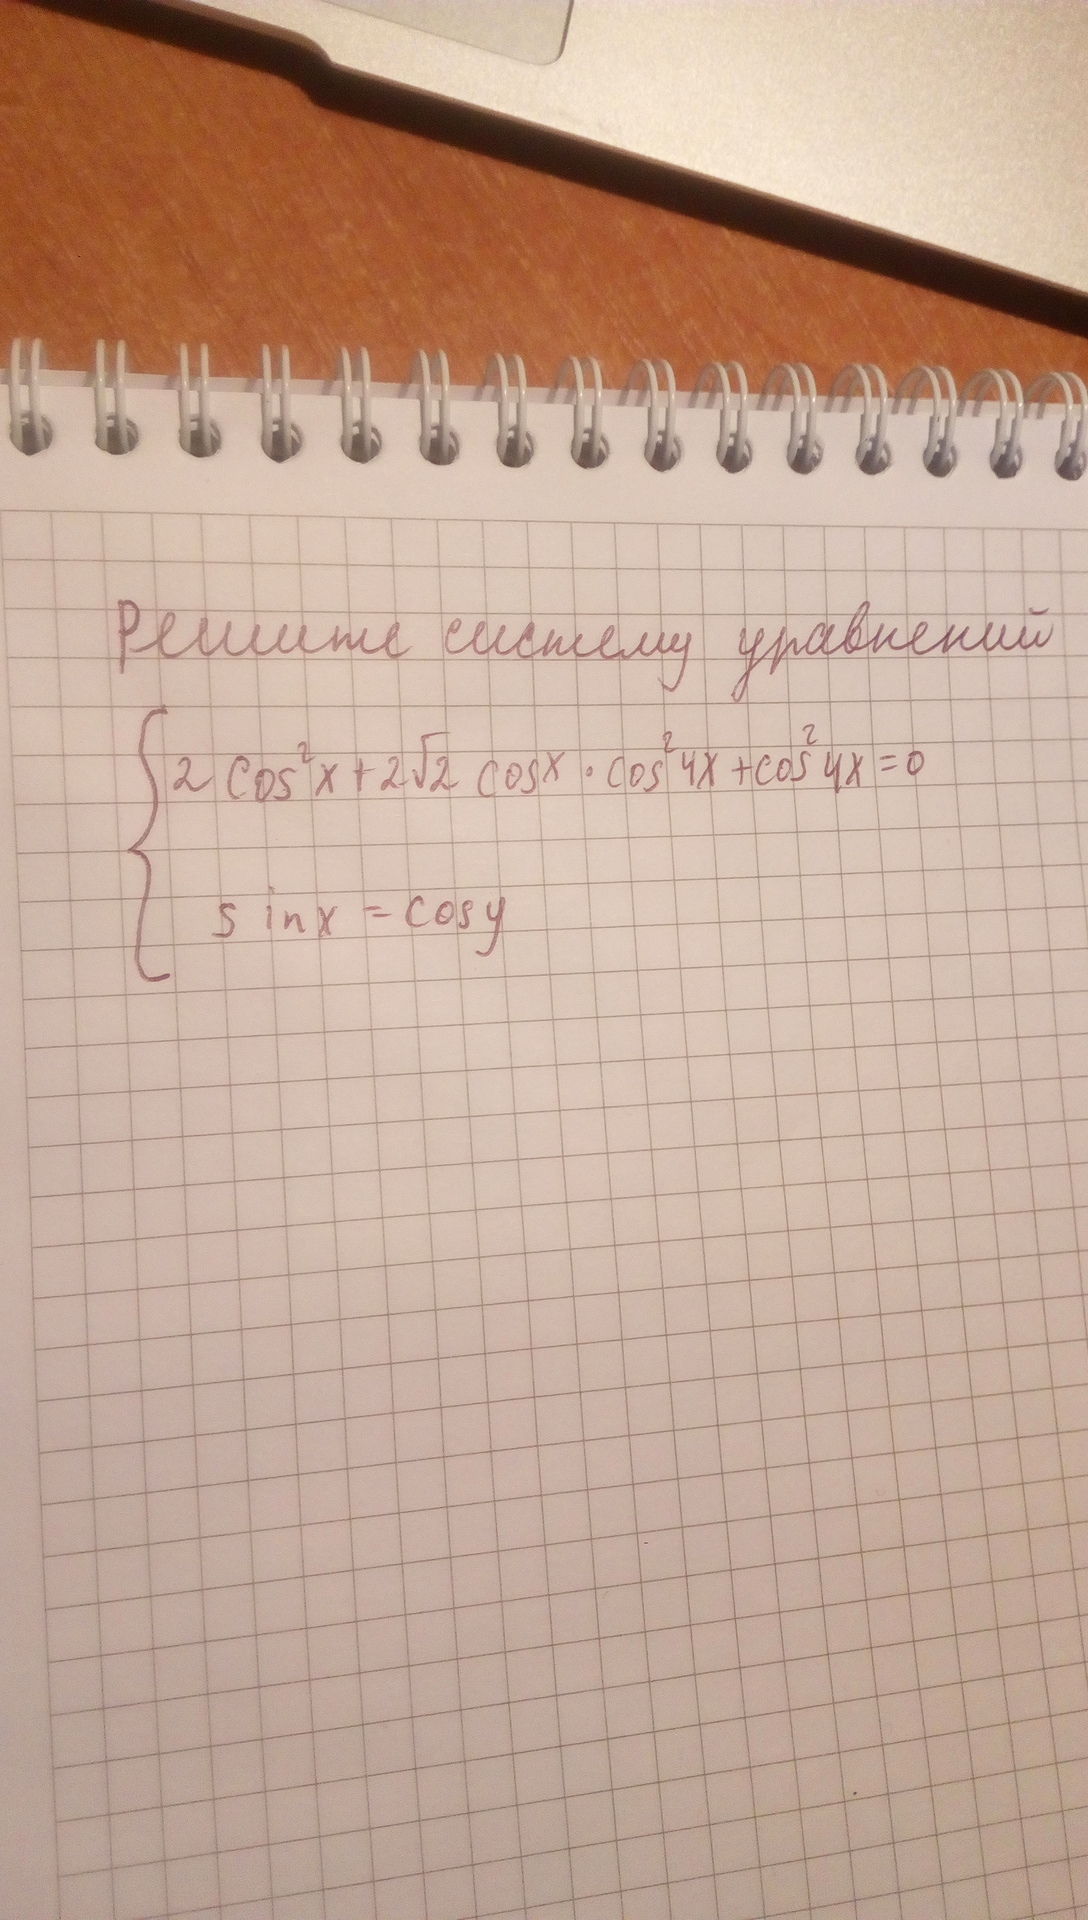 Решите систему уравнений
2 cos²x + 2√2 cosx · cos²4x + cos²4x = 0
sinx = cosy